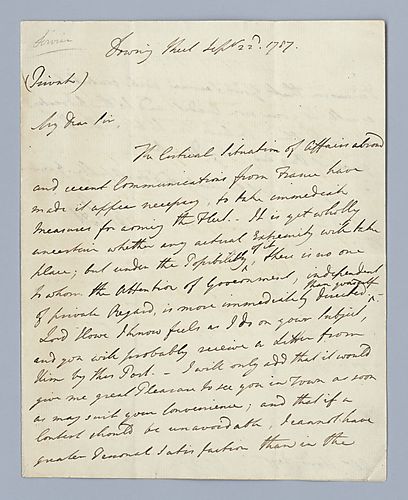 Jervis
Downing Street Septr. 22d. 1787.
(Private)
My Dear Sir
The Critical Situation of Affairs abroad
and recent Communications from France have
made it appear necessary to take immediate
Measures for arming the Fleet. It is yet wholly
uncertain whether any actual Extremity will take
place; but under the Possibility of it, there is no one
to whom the Attention of Government, independent
of private Regard, is more immediately directed than yourself.
Lord Howe I know feels as I do on your Subject,
and you will probably receive a Letter from
Him by this Post. – I will only add that it would
give me great Pleasure to see you in Town as soon
as may suit your Convenience; and that if a
Contest should be unavoidable, I cannot have
greater Personal Satisfaction than in the